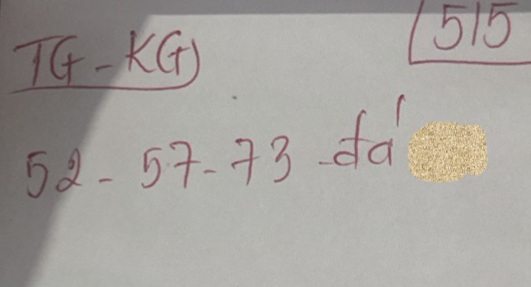 TG - KG 515
52 - 57 - 73 - đá